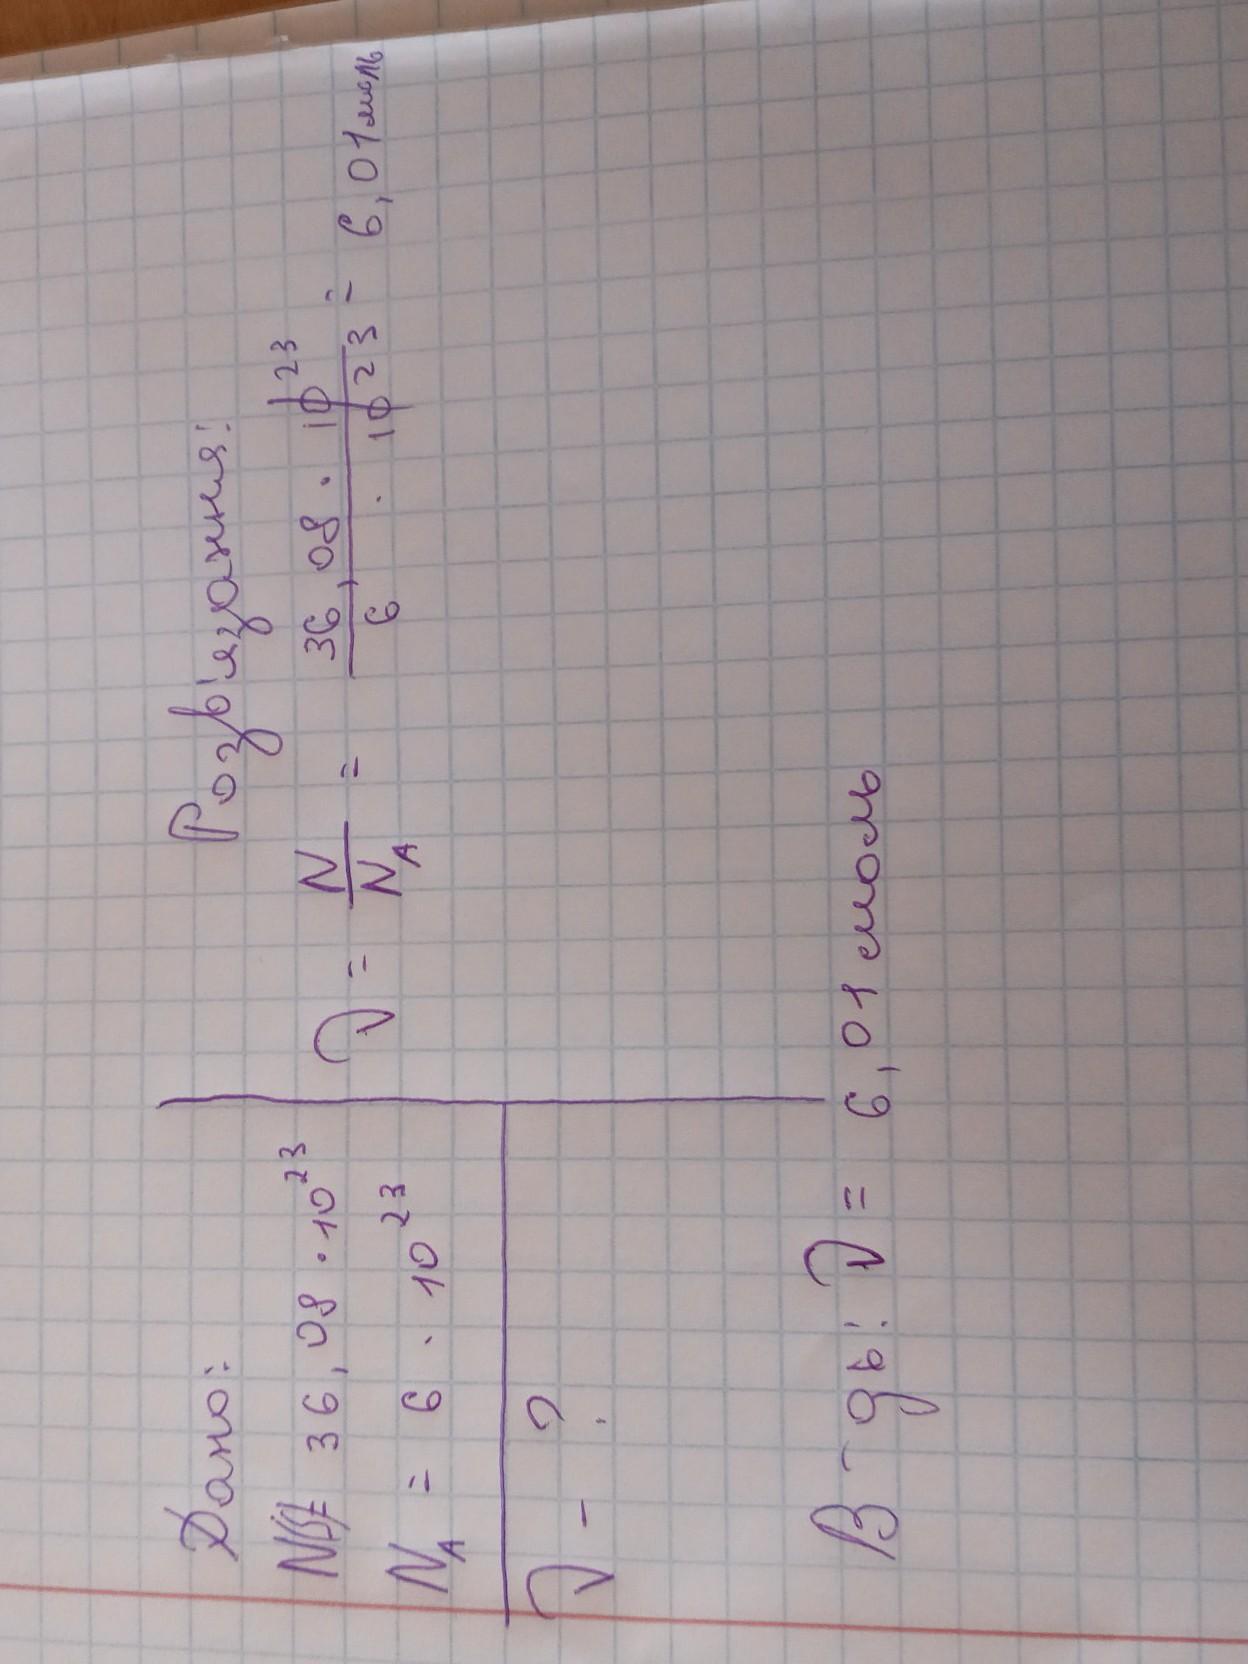 Дано:
N = 36,08 · 10²³
N_A = 6 · 10²³
ν - ?
Розв'язання:
ν = N/N_A = 36,08 · 10²³ / 6 · 10²³ = 6,01 моль
В-дь: ν = 6,01 моль